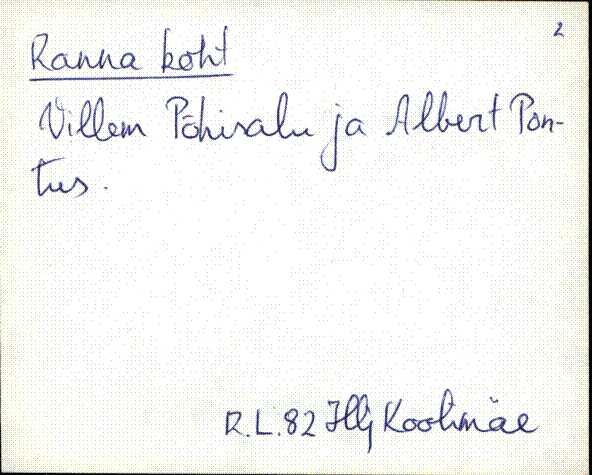 2
Ranna koht
Villem Põhisalu ja Albert Pon-
tus.
R.L. 82 Illj Koolimäe